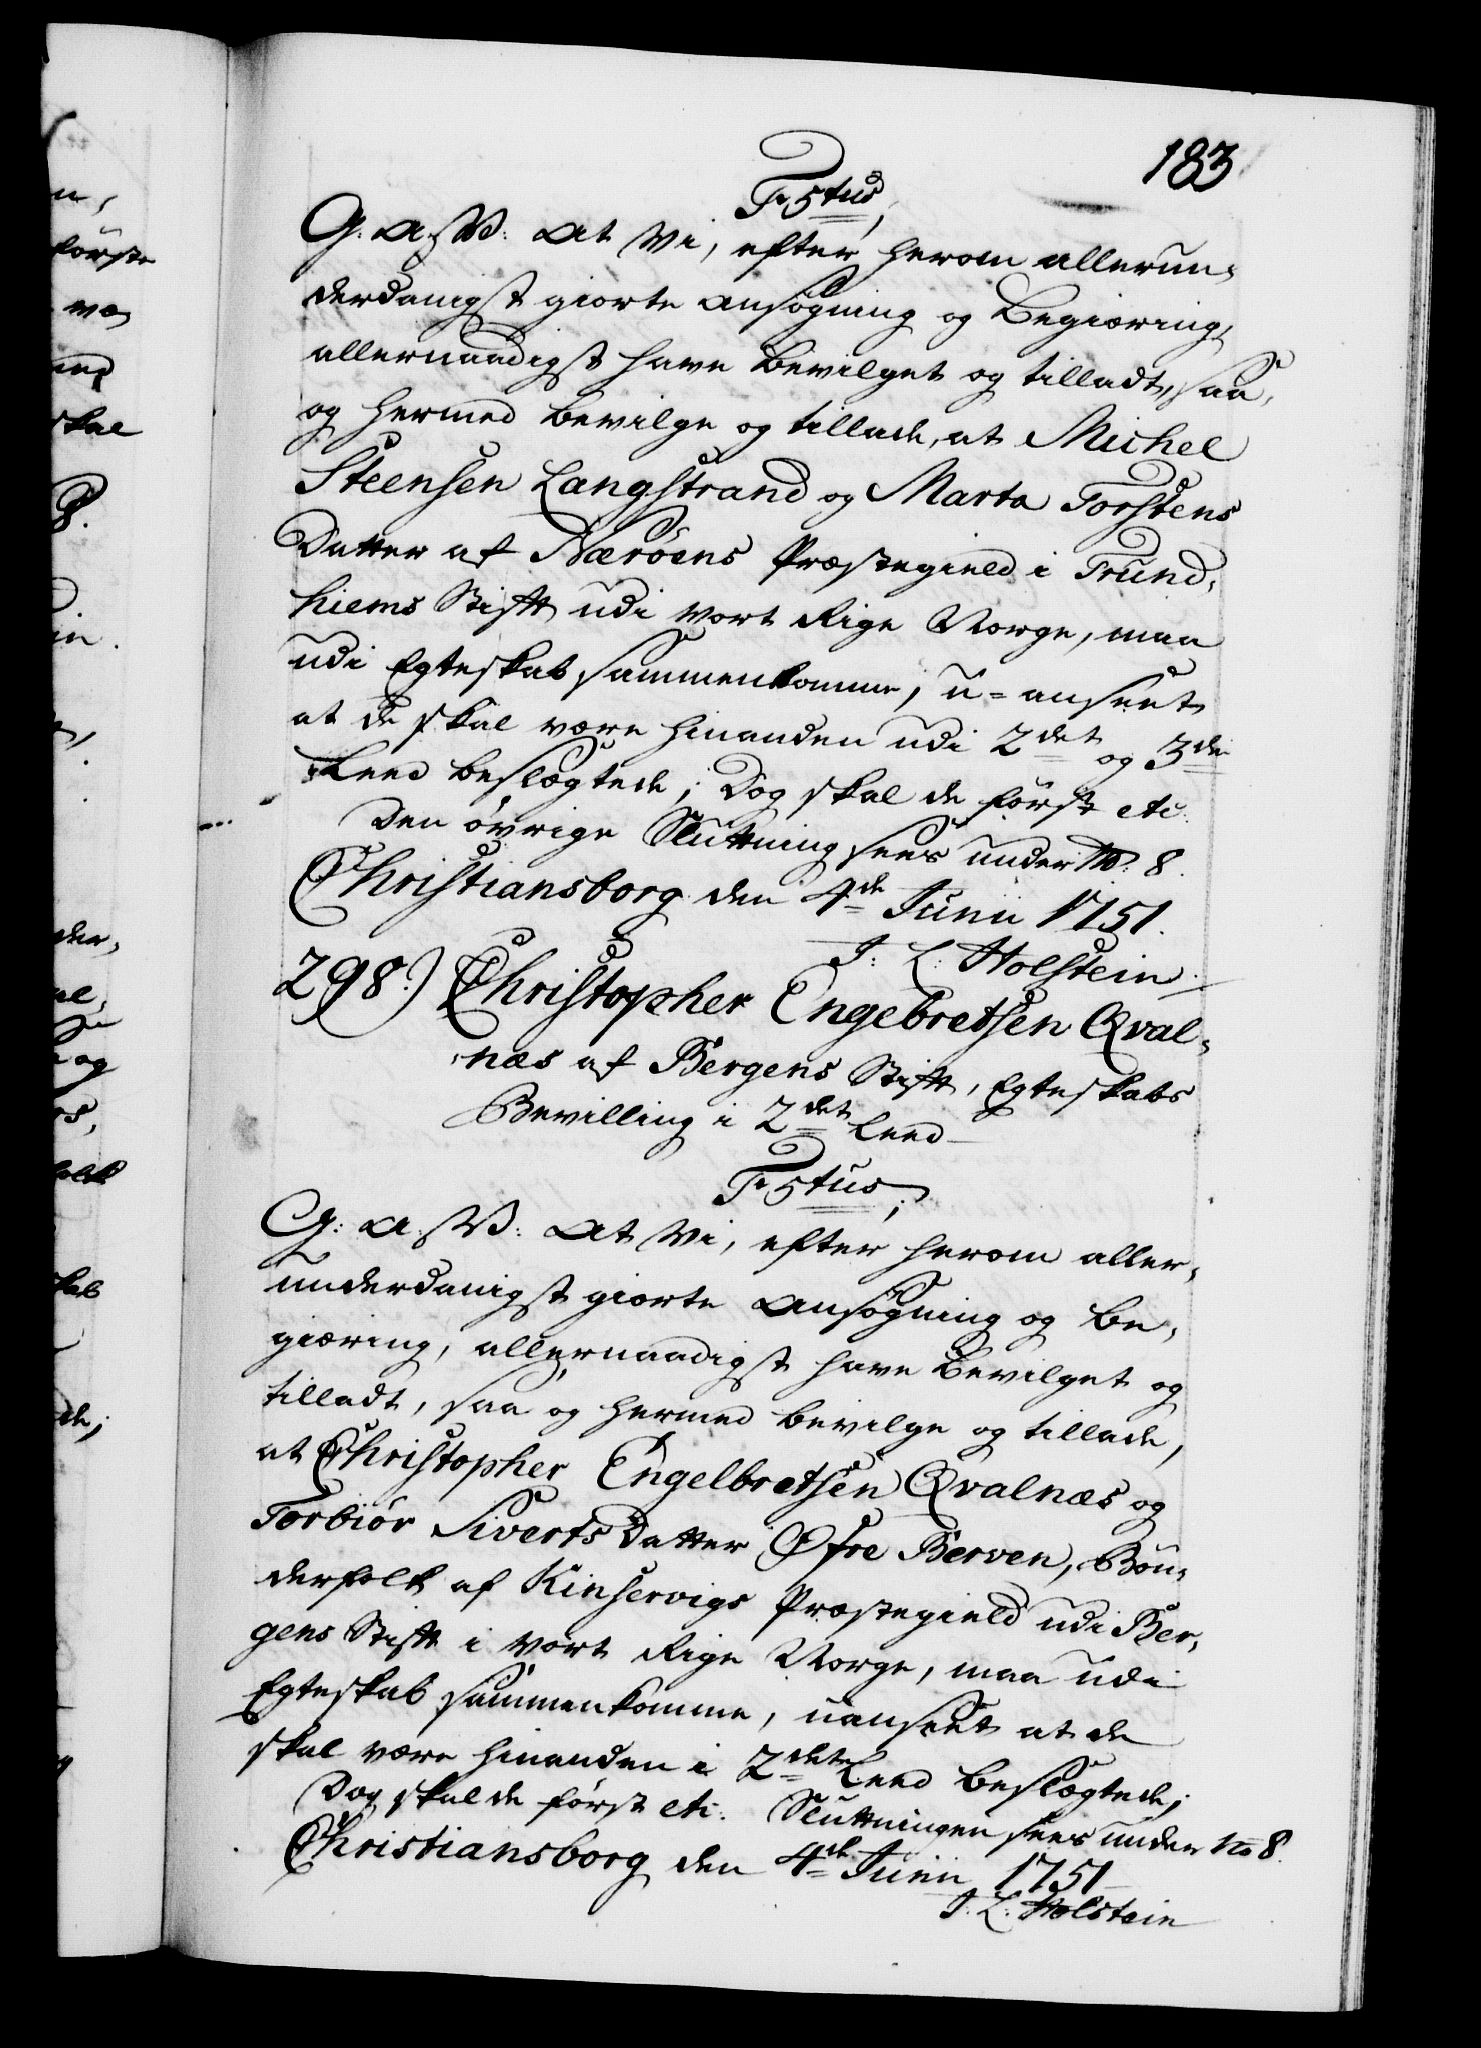 183
F. 5tus,
G. A. W: At Vi, efter herom allerun-
derdanigst giorte Ansøgning og Begiæring,
allernaadigst have bevilget og tilladt, saa
og hermed bevilge og tillade, at Michel
Steensen Langstrand og Marta Torstens
Datter af Nærøens Præstegield i Trund-
hiems Stift udi vort Rige Norge, maa
udi Egteskab sammenkomme, u-anseet
at de skal være hinanden udi 2det og 3die
Leed beslægtede; Dog skal de først etc.
Den övrige Sluttning sees under No. 8.
Christiansborg den 4de Junii 1751.
J: L: Holstein.
298.) Christopher Engebretsen Qval-
næs af Bergens Stift, Egteskabs
Bevilling i 2det Leed
F. 5tus,
G: A. W: At Vi, efter herom aller-
underdanigst giorte Ansøgning og Be-
giæring, allernaadigst have bevilget og
tilladt, saa og hermed bevilge og tillade,
at Christopher Engelbretsen Qvalnæs og
Torbiør Siverts Datter Øfre Berven, Bön-
derfolk af Kinservigs Præstegield udi Ber-
gens Stift i vort Rige Norge, maa udi
Egteskab sammenkomme, uanseet at de
skal være hinanden i 2det Leed beslægtede;
Dog skal de først etc. Sluttningen sees under No 8.
Christiansborg den 4de Junii 1751
J: L: Holstein